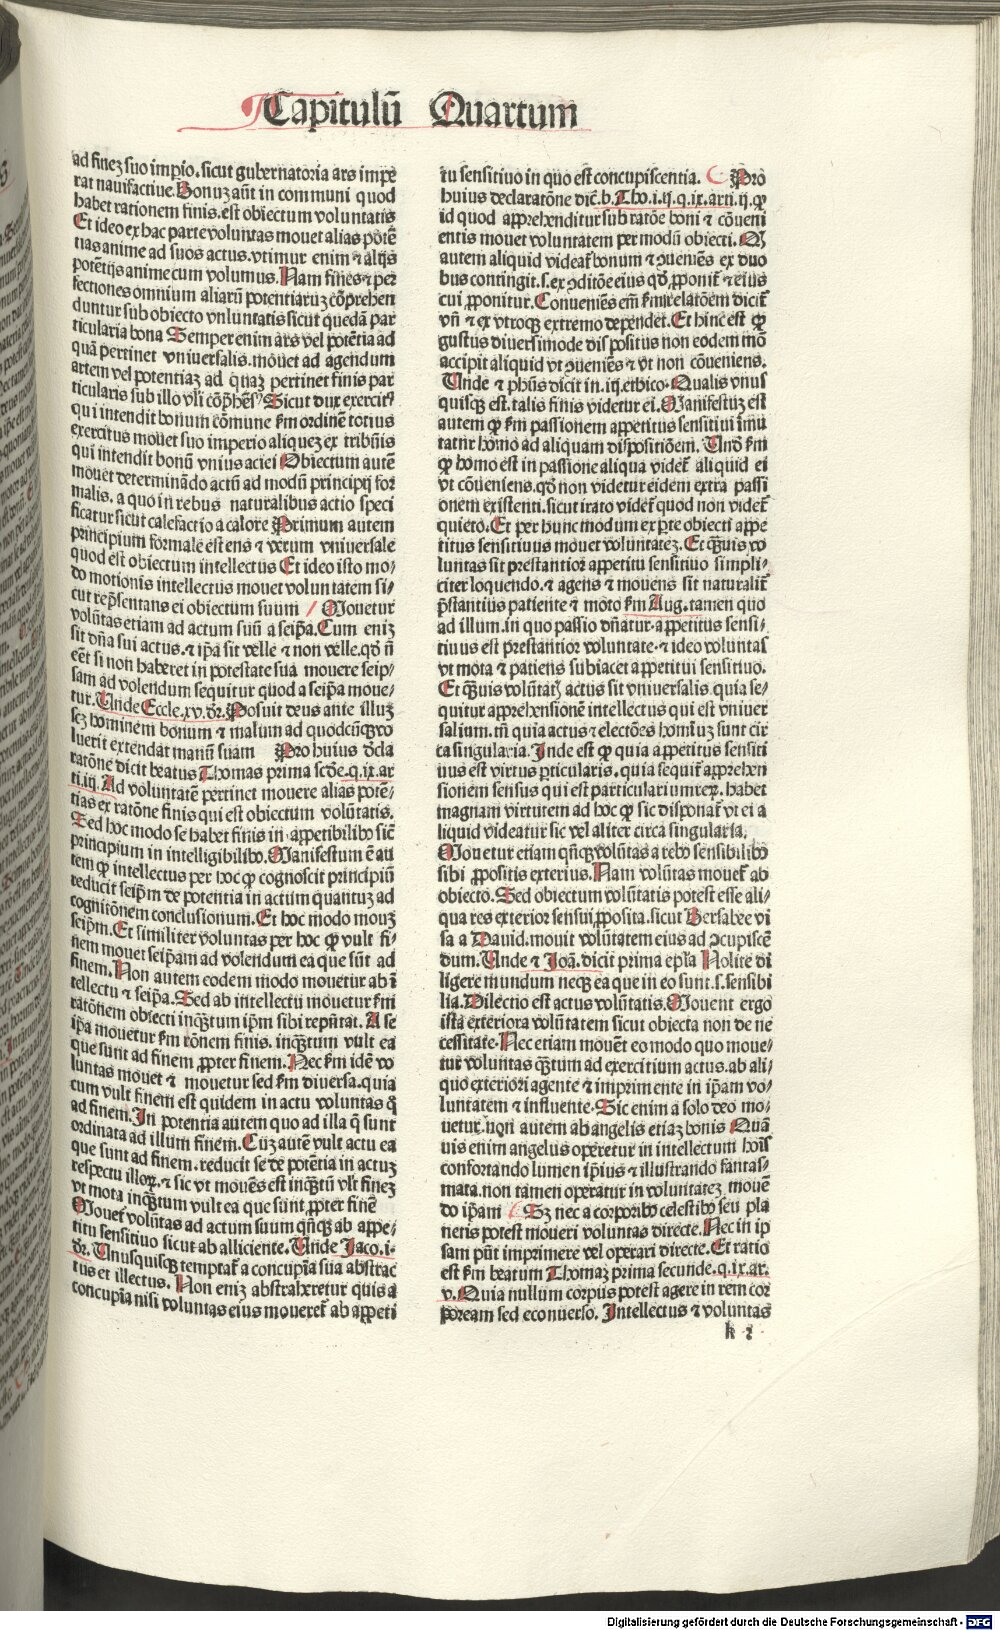 Capitulū Quartum
ad finez suo imp̄io. sicut gubernatoria ars impe
rat nauifactiue. Bonuz aūt in communi quod
habet rationem finis. est obiectum voluntatis
Et ideo ex hac parte voluntas mouet alias potē
tias anime ad suos actus. vtimur enim ⁊ alijs
potētijs anime cum volumus. Nam fines ⁊ per
fectiones omnium aliarū potentiaruz cōprehen
duntur sub obiecto vnluntatis sicut quedā par
ticularia bona Semper enim ars vel potētia ad
quā pertinet vniuersalis. mouet ad agendum
artem vel potentiaz ad quaz pertinet finis par
ticularis sub illo vl̄i cōp̄hēsꝰ Sicut dux exercitꝰ
qui intendit bonum cōmune ẜm ordinē totius
exercitus mouet suo imperio aliquez ex tribūis
qui intendit bonū vnius aciei Obiectum autē
mouet determinādo actū ad modū principij for
malis. a quo in rebus naturalibus actio speci
ficatur sicut calefactio a calore Primum autem
principium formale est ens ⁊ verum vniuersale
quod est obiectum intellectus Et ideo isto mo-
do motionis intellectus mouet voluntatem si-
cut rep̄sentans ei obiectum suum Mouetur
volūtas etiam ad actum suū a seip̄a. Cum eniz
sit dn̄a sui actus. ⁊ ip̄a sit velle ⁊ non velle. qd̄ n̄
eēt si non haberet in potestate sua mouere seip-
sam ad volendum sequitur quod a seip̄a moue-
tur. Unde Eccle. xv. dr̄. Posuit deus ante illuz
sez hominem bonum ⁊ malum ad quodcūqꝫ vo
luerit extendat manū suam Pro huius d̄cla
ratōne dicit beatus Thomas prima sc̄de. q. ix. ar
ti. iij. Ad voluntatē pertinet mouere alias potē-
tias ex ratōne finis qui est obiectum volūtatis.
Sed hoc modo se habet finis in appetibilibꝰ sic̄
principium in intelligibilibꝰ. Manifestum ē au
tem ꝙ intellectus per hoc ꝙ cognoscit principiū
reducit seip̄m de potentia in actum quantuz ad
cognitōnem conclusionum. Et hoc modo mouꝫ
seip̄m. Et similiter voluntas per hoc ꝙ vult fi-
nem mouet seip̄am ad volendum ea que sūt ad
finem. Non autem eodem modo mouetur ab ī
tellectu ⁊ seip̄a. Sed ab intellectu mouetur ẜm
ratōnem obiecti inqꝫtum ip̄m sibi rep̄ntat. A se
ip̄a mouetur ẜm rōnem finis. inqꝫtum vult ea
que sunt ad finem ꝓpter finem. Nec ẜm idē vo
luntas mouet ⁊ mouetur sed ẜm diuersa. quia
cum vult finem est quidem in actu voluntas ꝙ̄
ad finem. In potentia autem quo ad illa q̄ sunt
ordinata ad illum finem. Cūz autē vult actu ea
que sunt ad finem. reducit se de potētia in actuz
respectu illoꝝ. ⁊ sic vt mouēs est inqꝫtū vl̄t finez
vt mota inqꝫtum vult ea que sunt ꝓpter finē
Mouet̄ volūtas ad actum suum qn̄qꝫ ab appe-
titu sensitiuo sicut ab alliciente. Unde Jaco. i.
dr̄. Unusquisqꝫ temptat̄ a concupīa sua abstrac
tus et illectus. Non eniz abstraheretur quis a
concupīa nisi voluntas eius moueret̄ ab appeti
tu sensitiuo in quo est concupiscentia. Pro
huius declaratōne dic̄. b. Tho. i. ij. q. ix. arti. ij. ꝙ
id quod apprehenditur sub ratōe boni ⁊ cōueni
entis mouet voluntatem per modū obiecti. Q
autem aliquid videat̄ bonum ⁊ ꝯueniēs ex duo
bus contingit. s. ex ꝯditōe eius qd̄ ꝓponit̄ ⁊ eius
cui ꝓponitur. Conueniēs em̄ ẜm relatōem dicit̄
vn̄ ⁊ ex vtroqꝫ extremo dependet. Et hinc est ꝙ
gustus diuersimode dispositus non eodem mō
accipit aliquid vt ꝯueniēs ⁊ vt non cōueniens.
Unde ⁊ ph̄us dicit in. iij. ethico. Qualis vnus
quisqꝫ est. talis finis videtur ei. Manifestuz est
autem ꝙ ẜm passionem appetitus sensitiui īmu
tatur homo ad aliquam dispositiōem. Und̄ ẜm
ꝙ homo est in passione aliqua videt̄ aliquid ei
vt cōueniens. qd̄ non videtur eidem extra passi
onem existenti. sicut irato videt̄ quod non videt̄
quieto. Et per hunc modum ex ꝑte obiecti appe
titus sensitiuus mouet voluntatez. Et qꝫuis vo
luntas sit prestantior appetitu sensitiuo simpli-
citer loquendo. ⁊ agens ⁊ mouens sit naturalit̄
p̄stantius patiente ⁊ moto ẜm Aug. tamen quo
ad illum. in quo passio dn̄atur. appetitus sensi-
tiuus est prestantior voluntate. ⁊ ideo voluntas
vt mota ⁊ patiens subiacet appetitui sensitiuo.
Et qꝫuis volūtatꝭ actus sit vniuersalis. quia se-
quitur apprehensionē intellectus qui est vniuer
salium. tn̄ quia actus ⁊ electōes homīuz sunt cir
ca singularia. Inde est ꝙ quia appetitus sensiti
uus est virtus ꝑticularis. quia sequit̄ apprehen
sionem sensus qui est particularium reꝝ. habet
magnam virtutem ad hoc ꝙ sic disponat̄ vt ei a
liquid videatur sic vel aliter circa singularia.
Mouetur etiam qn̄qꝫ volūtas a rebꝰ sensibilibꝰ
sibi ꝓpositis exterius. Nam volūtas mouet̄ ab
obiecto. Sed obiectum volūtatis potest esse ali-
qua res exterior sensui ꝓposita. sicut Bersabee vi
sa a Dauid. mouit volūtatem eius ad ꝯcupiscē
dum. Unde ⁊ Joā. dicit prima ep̄la Nolite di
ligere mundum neqꝫ ea que in eo sunt. s. sensibi
lia. Dilectio est actus volūtatis. Mouent ergo
ista exteriora volūtatem sicut obiecta non de ne
cessitate. Nec etiam mouēt eo modo quo moue-
tur voluntas qꝫtum ad exercitium actus. ab ali-
quo exteriori agente ⁊ imprimente in ip̄am vo-
luntatem ⁊ influente. Sic enim a solo deo mo-
uetur. non autem ab angelis etiaz bonis Quā
uis enim angelus operetur in intellectum hoīs
confortando lumen ip̄ius ⁊ illustrando fantas-
mata. non tamen operatur in voluntatez mouē
do ip̄am Sꝫ nec a corporibꝰ celestibꝰ seu pla
netis potest moueri voluntas directe. Nec in ip
sam pn̄t imprimere vel operari directe. Et ratio
est ẜm beatum Thomaz prima secunde. q. ix. ar.
v. Quia nullum corpus potest agere in rem cor
poream sed econuerso. Intellectus ⁊ voluntas
k 2
Digitalisierung gefördert durch die Deutsche Forschungsgemeinschaft - DFG